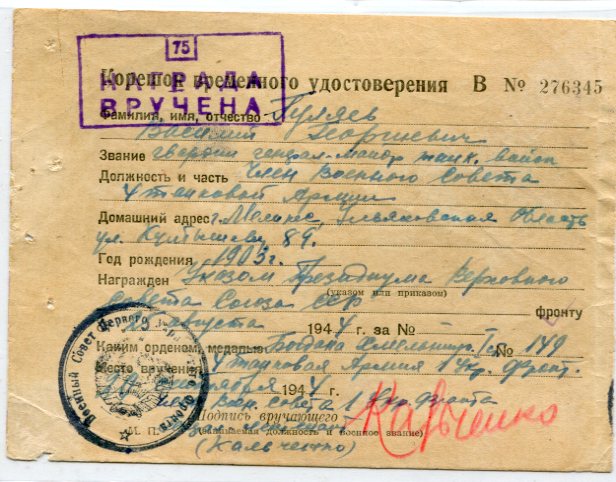 75
НАГРАДА
ВРУЧЕНА
Корешок временного удостоверения В № 276345
Фамилия, имя, отчество Гуляев
Василий Георгиевич
Звание гвардии генерал-майор танк. войск
Должность и часть Член Военного Совета
4 танковой Армии
Домашний адрес г. Мелекес, Ульяновская Область
ул. Куйбышева, 89.
Год рождения 1903 г.
Награжден Указом Президиума Верховного
(указом или приказом)
Совета Союза ССР фронту
августа 1944 г. за №
Каким орденом, медалью Богдана Хмельницк. I ст. № 149
Место вручения 4 танковая Армия 1 Укр. фронт.
1944 г.
Воен. совета 1 Укр. фронта
Подпись вручающего Кальченко
М. П. (занимаемая должность и военное звание)
(Кальченко)
Военный Совет Первого фронта